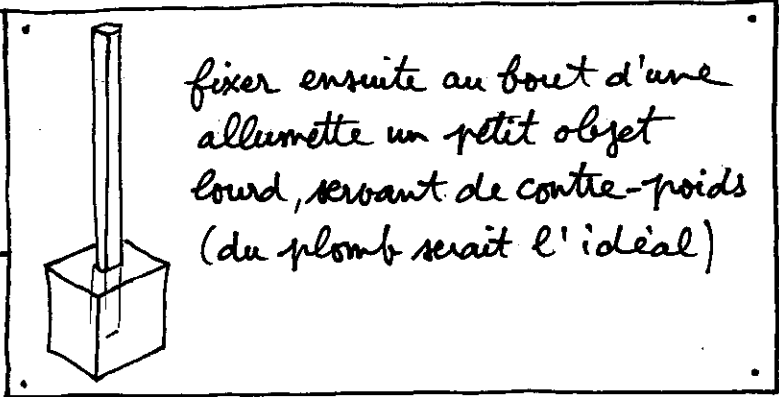 fixer ensuite au bout d'une
allumette un petit objet
lourd, servant de contre-poids
(du plomb serait l'idéal)